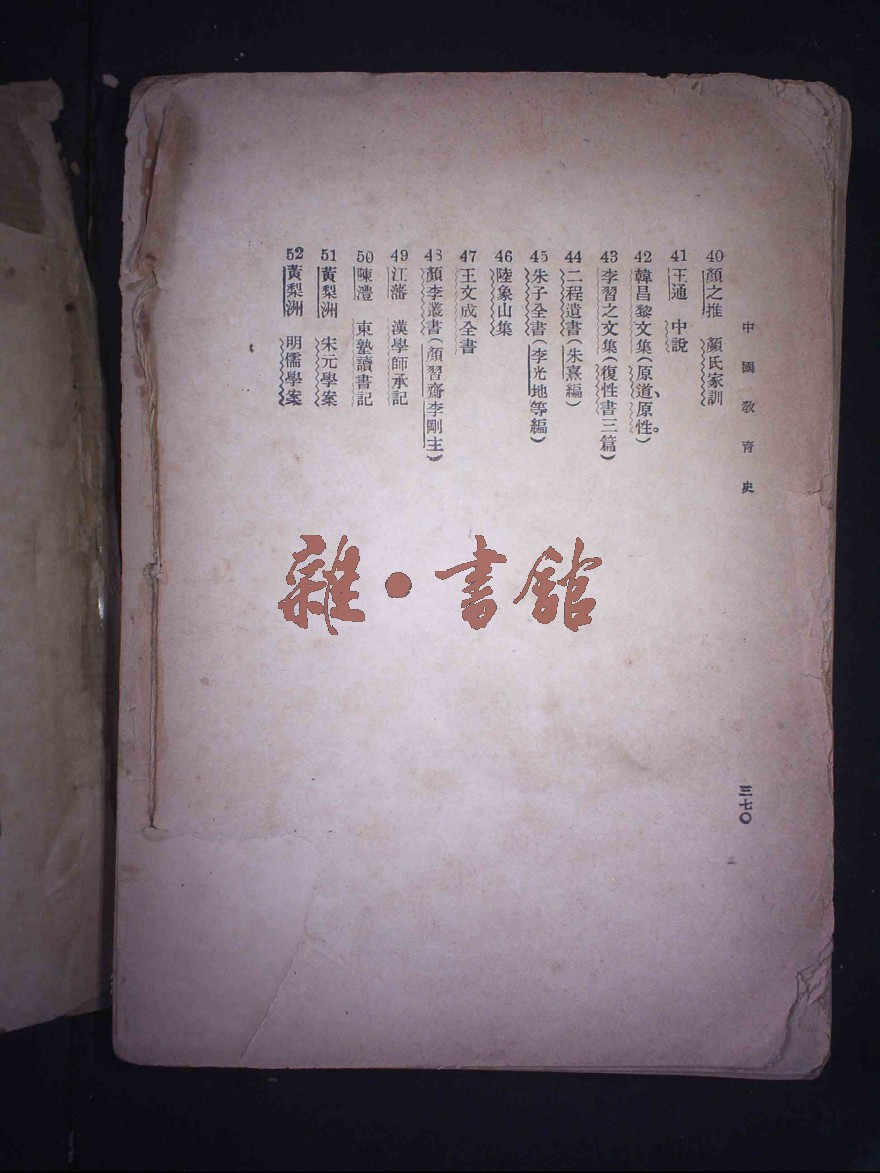 中國教育史
40 顏之推 顏氏家訓
41 王通 中說
42 韓昌黎文集(原道、原性。)
43 李習之文集(復性書三篇)
44 二程遺書(朱熹編)
45 朱子全書(李光地等編)
46 陸象山集
47 王文成全書
48 顏李叢書(顏習齋李剛主)
49 江藩 漢學師承記
50 陳澧 東塾讀書記
51 黃梨洲 宋元學案
52 黃梨洲 明儒學案
三七〇
雜•書館